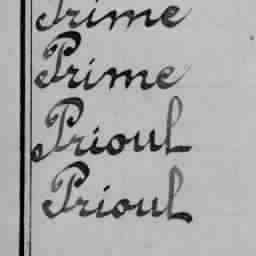 Prime
Prime
Prioul
Prioul